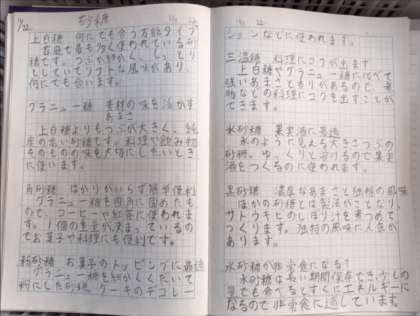 11/22 砂糖
上白糖 何にでも合う万能タイプ
家庭で最も多く使われている砂
糖です。つぶが細かく、しっとり
としていてソフトな風味があり、
何にでも合います。
グラニュー糖 素材の味を活かす
あまさ
上白糖よりもつぶが大きく、純
度の高い砂糖です。料理や飲み物
そのものの味を大切にしたいとき
に使います。
角砂糖 はかりがいらず簡単便利
グラニュー糖を四角に固めたも
ので、コーヒーや紅茶に使われま
す。1個の重量が決まっているの
でお菓子や料理にも便利です。
粉砂糖 お菓子のトッピングに最適
グラニュー糖を細かくくだいて
粉にした砂糖。ケーキのデコレー
ションなどに使われます。
三温糖 料理にコクが出ます
上白糖やグラニュー糖に比べて
強いあまさと香りがあるので、煮
物などの料理にコクを出すことが
できます。
氷砂糖 果実酒に最適
氷のように見える大きさつぶの
砂糖。ゆっくりと溶けるので果実
酒をつくるのに使われます。
黒砂糖 濃厚なあまさと独特の風味
ほかの砂糖とは製法がことなり、
サトウキビのしぼり汁を煮つめて
つくります。独特の風味に人気が
あります。
氷砂糖が非常食になる?
氷砂糖は長い期間保存でき、少しの
量でも食べるとすぐにエネルギーに
なるので非常食に適しています。